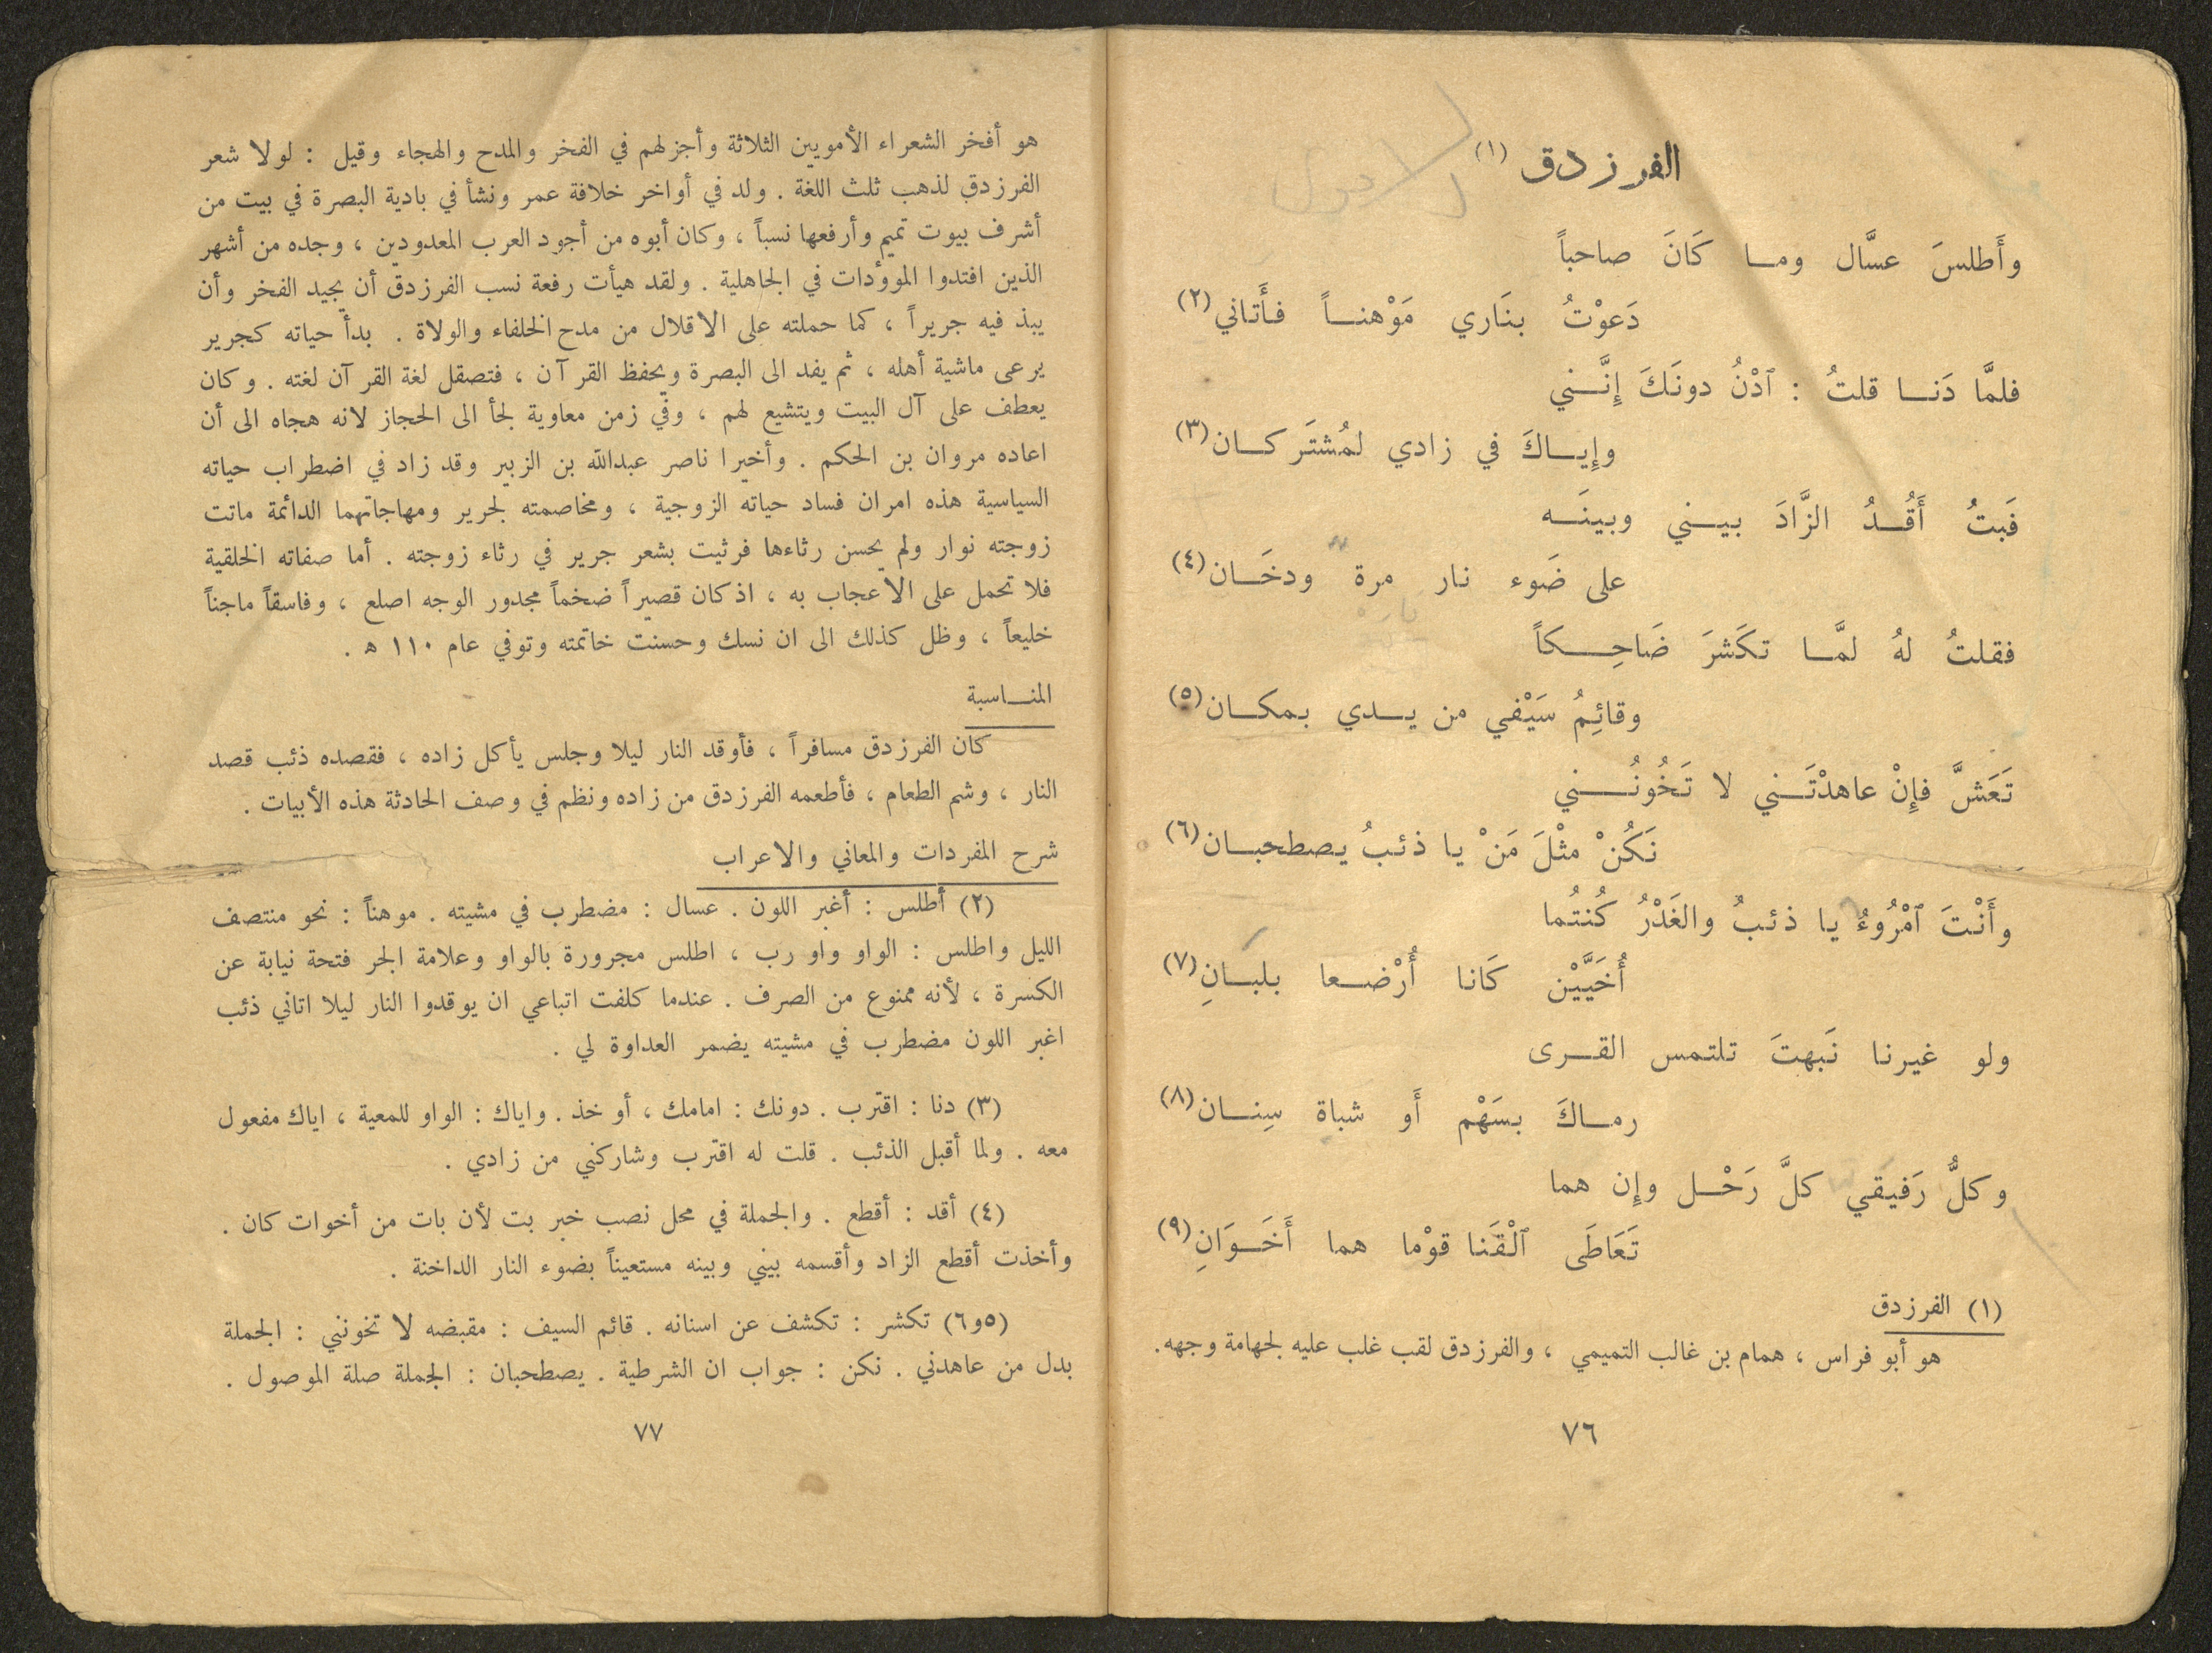 الفرزدق (١)
وأَطلسَ عسَّال ومـا كَانَ صاحباً
دَعوْتُ بنَاري مَوْهنـاً فأَتاني (٢)
فلمَّا دَنـا قلتُ : ٱدْنُ دونَكَ إِنَّـني
وإِيـاكَ في زادي لمُشتَركـان (٣)
فَبتُ أَقُـدُ الزَّادَ بيـني وبينَـه
على ضَوء نار مرة ودخَـان (٤)
فقلتُ لهُ لمَّـا تكَشرَ ضَاحِـكاً
وقائِمُ سَيْفي من يـدي بمكـان (٥)
تَعَشَّ فإِنْ عاهدْتَـني لا تَخُونُـني
نَكُنْ مثْلَ مَنْ يا ذئبُ يصطحبـان (٦)
وأَنْتَ ٱمْرُوءُ يا ذئبُ والغَدْرُ كُنتُما
أُخَيَّيْن كَانا أُرْضـعا بلبـانِ (٧)
ولو غيرنا نَبهتَ تلتمس القـرى
رمـاكَ بسَهْم أَو شباة سِنـان (٨)
وكلُّ رَفيقي كلَّ رَحْـل وإِن هما
تَعَاطَى ٱلْقَنا قوْما هما أَخَـوَانِ (٩)
(١) الفرزدق
هو أبو فراس ، همام بن غالب التميمي ، والفرزدق لقب غلب عليه لجهامة وجهه.
٧٦
هو أفخر الشعراء الأمويين الثلاثة وأجزلهم في الفخر والمدح والهجاء وقيل : لولا شعر
الفرزدق لذهب ثلث اللغة . ولد في أواخر خلافة عمر ونشأ في بادية البصرة في بيت من
أشرف بيوت تميم وأرفعها نسباً ، وكان أبوه من أجود العرب المعدودين ، وجده من أشهر
الذين افتدوا الموؤدات في الجاهلية . ولقد هيأت رفعة نسب الفرزدق أن يجيد الفخر وأن
يبذ فيه جريراً ، كما حملته على الاقلال من مدح الخلفاء والولاة . بدأ حياته كجرير
يرعى ماشية أهله ، ثم يفد الى البصرة ويحفظ القرآن ، فتصقل لغة القرآن لغته . وكان
يعطف على آل البيت ويتشيع لهم ، وفي زمن معاوية لجأ الى الحجاز لانه هجاه الى أن
اعاده مروان بن الحكم . وأخيرا ناصر عبدالله بن الزبير وقد زاد في اضطراب حياته
السياسية هذه امران فساد حياته الزوجية ، ومخاصمته لجرير ومهاجاتهما الدائمة ماتت
زوجته نوار ولم يحسن رثاءها فرثيت بشعر جرير في رثاء زوجته . أما صفاته الخلقية
فلا تحمل على الاعجاب به ، اذ كان قصيراً ضخماً مجدور الوجه اصلع ، وفاسقاً ماجناً
خليعاً ، وظل كذلك الى ان نسك وحسنت خاتمته وتوفي عام ١١٠ هـ .
المنـاسبة
كان الفرزدق مسافراً ، فأوقد النار ليلا وجلس يأكل زاده ، فقصده ذئب قصد
النار ، وشم الطعام ، فأطعمه الفرزدق من زاده ونظم في وصف الحادثة هذه الأبيات .
شرح المفردات والمعاني والاعراب
(٢) أطلس : أغبر اللون . عسال : مضطرب في مشيته . موهناً : نحو منتصف
الليل واطلس : الواو واو رب ، اطلس مجرورة بالواو وعلامة الجر فتحة نيابة عن
الكسرة ، لأنه ممنوع من الصرف . عندما كلفت اتباعي ان يوقدوا النار ليلا اتاني ذئب
اغبر اللون مضطرب في مشيته يضمر العداوة لي .
(٣) دنا : اقترب . دونك : امامك ، أو خذ . واياك : الواو للمعية ، اياك مفعول
معه . ولما أقبل الذئب . قلت له اقترب وشاركني من زادي .
(٤) أقد : أقطع . والجملة في محل نصب خبر بت لأن بات من أخوات كان .
وأخذت أقطع الزاد وأقسمه بيني وبينه مستعيناً بضوء النار الداخنة .
(٥و٦) تكشر : تكشف عن اسنانه . قائم السيف : مقبضه لا تخونني : الجملة
بدل من عاهدني . نكن : جواب ان الشرطية . يصطحبان : الجملة صلة الموصول .
٧٧